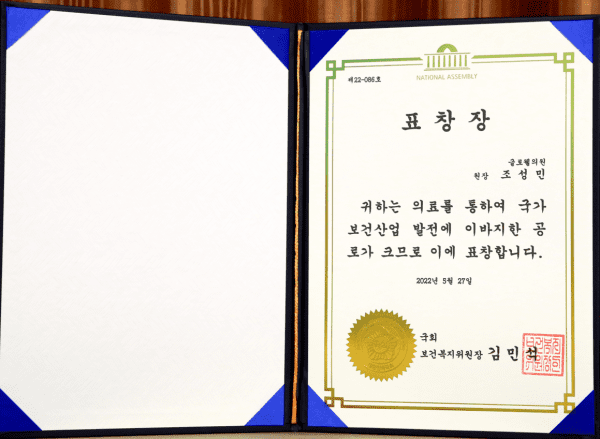 NATIONAL ASSEMBLY
제22-086호
표 창 장
글로웰의원
원장 조 성 민
귀하는 의료를 통하여 국가
보건산업 발전에 이바지한 공
로가 크므로 이에 표창합니다.
2022년 5월 27일
국회
보건복지위원장 김 민 석